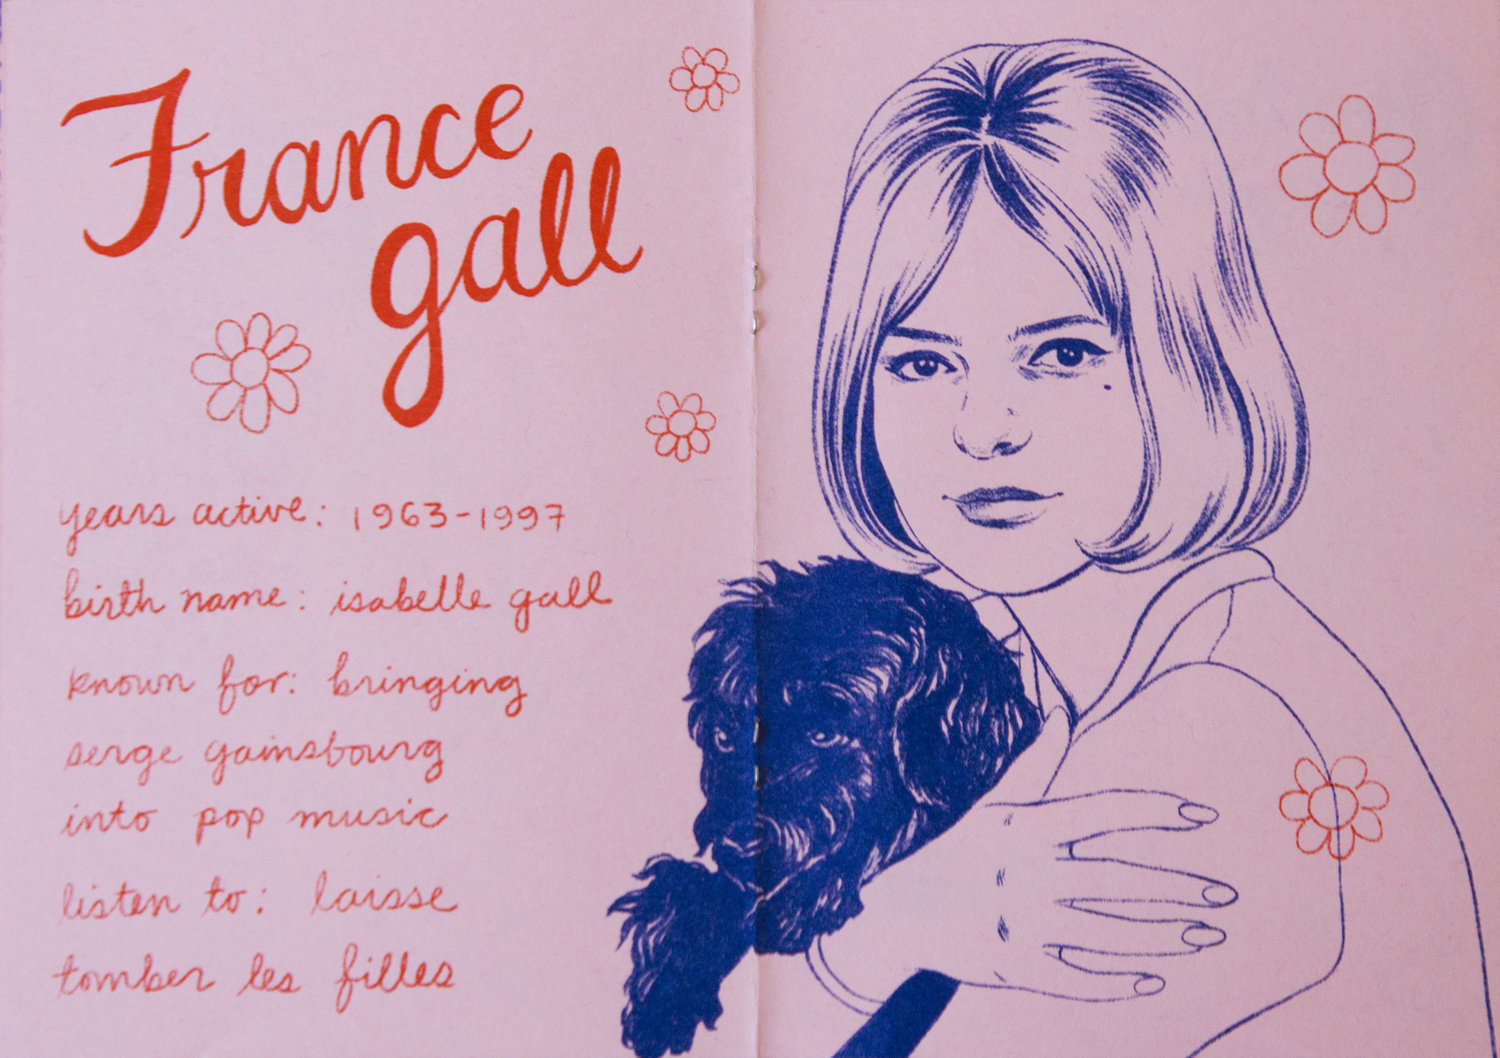 France
gall
years active: 1963-1997
birth name: isabelle gall
known for: bringing
serge gainsbourg
into pop music
listen to: laisse
tomber les filles